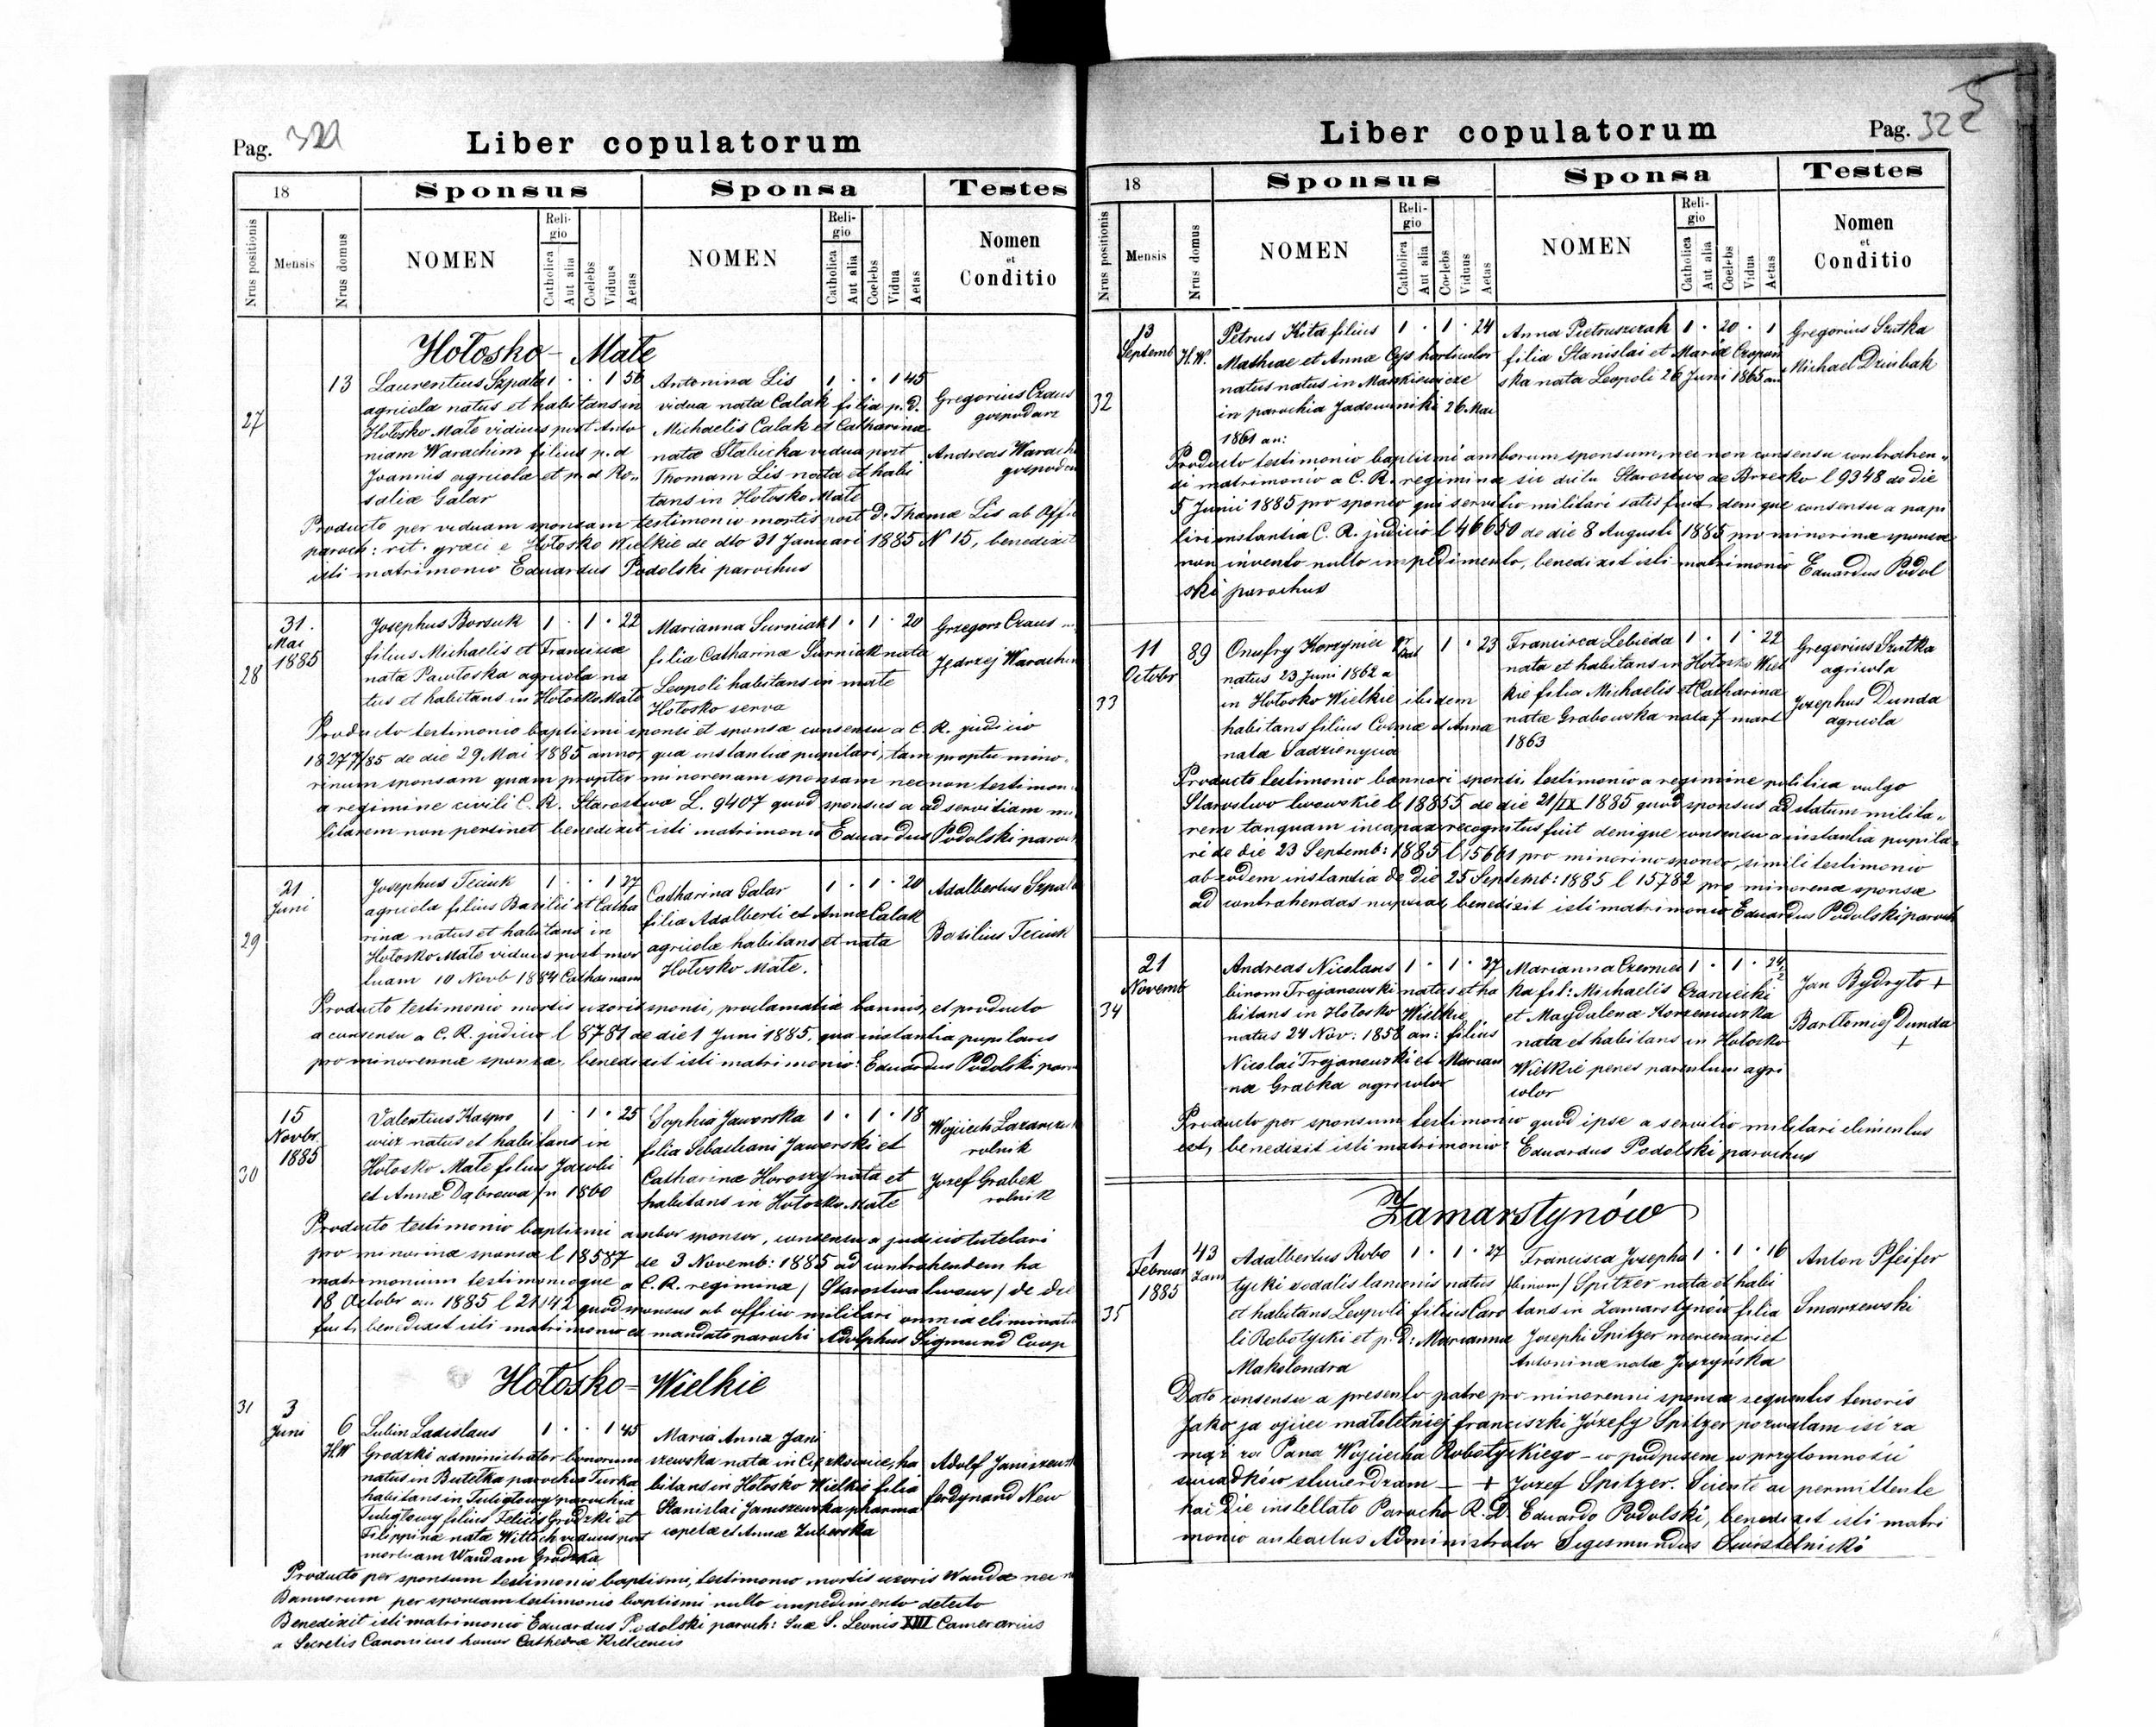 Pag. 321
Liber copulatorum
18
Sponsus
Sponsa
Testes
Nrus positionis
Mensis
Nrus domus
NOMEN
Religio
Catholica
Aut alia
Coelebs
Viduus
Aetas
NOMEN
Religio
Catholica
Aut alia
Coelebs
Vidua
Aetas
Nomen
et
Conditio
Hołosko - Małe
27
13
Laurentius Szpala 1 . . 1 56
agricola natus et habitans in
Hołosko Małe viduus post Anto
niam Warachim filius p. d
Joannis agricola et p. d Ro„
salia Galar
Antonina Lis 1 . . 1 45
vidua nata Calak filia p. d.
Michaelis Calak et Catharina
nata Stabicka vidua post
Thomam Lis nata et habi
tans in Hołosko Małe
Gregorius Czaus
gospodarz
Andreas Warach
gospodar
Producto per viduam sponsam testimonio mortis post D: Thoma Lis ab Offi
paroch: rit. graeci e Hołosko Wielkie de dto 31 Januari 1885 N 15, benedixit
isti matrimonio Eduardus Podolski parochus
28
31.
Mai
1885
Josephus Borsuk 1 . 1 . 22
filius Michaelis et Francisca
nata Pawłoska agricola na
tus et habitans in Hołosko Małe
Marianna Surniak 1 . 1 . 20
filia Catharina Surniak nata
Leopoli habitans in małe
Hołosko serva
Grzegorz Czaus
Jędrzej Warachim
Producto testimonio baptismi sponsi et sponsa consensu a C. R. judicio
18277/85 de die 29 Mai 1885 anno, qua instantia pupilari, tam propter mino„
rinum sponsam quam propter minorenam sponsam necnon testimon
a regimine civili C. R. Starostwa L. 9407 quod sponsus a ad servitiam mi
litarem non pertinet benedixit isti matrimonio Eduardus Podolski paroch
29
21
Juni
Josephus Teciuk 1 . . 1 27
agricola filius Basilii et Catha
rina natus et habitans in
Hołosko Małe viduus post mor
tuam 10 Novb 1884 Catharinam
Catharina Galar 1 . 1 . 20
filia Adalberti et Anna Calak
agricola habitans et nata
Hołosko Małe.
Adalbertus Szpala
Basilius Teciuk
Producto testimonio mortis uxoris sponsi, proclamatis bannis, et producto
a consensu a C. R. judicio l 8781 de die 1 Juni 1885. qua instantia pupilaris
pro minorenna sponsa, benedixit isti matrimonio: Eduardus Podolski paro
30
15
Novbr
1885
Valentius Kaspro 1 . 1 . 25
wicz natus et habitans in
Hołosko Małe filius Jacobi
et Anna Dąbrowa /n 1860
Sophia Jaworska 1 . 1 . 18
filia Sebastiani Jaworski et
Catharina Horoszy nata et
habitans in Hołosko Małe
Wojciech Lazarcz
rolnik
Jozef Grabek
rolnik
Producto testimonio baptismi ambor sponsor, consensu a judicio tutelari
pro minorina sponsa l 18587 de 3 Novemb: 1885 ad contrahendem ha
matrimonium testimonioque a C. R. regimina / Starostwa lwows / de die
18 Octobr an 1885 l 21142 quod sponsus ab officio militari omnia eliminatus
fuit, benedixit isti matrimonio ex mandato parochi Adolphus Sigmund Coop
Hołosko - Wielkie
31
3
Juni
6
H.W
Lubin Ladislaus 1 . . 1 45
Grodzki administrator bonorum
natus in Butelka parochia Turka
habitans in Tuligłowy parochia
Tuligłowy filius Felicis Grodzki et
Filippina nata Wittich viduus post
mortuam Wandam Grodzka
Maria Anna Jani
szewska nata in Ciężkowice, ha
bitans in Hołosko Wielkie filia
Stanislai Janiszewska pharma
copola et Anna Zubowska
Adolf Janiszewsk
ferdynand New
Producto per sponsum testimonio baptismi, testimonio mortis uxoris Wanda nec n
Bannorum per sponsam testimonio baptismi nullo impedimento detecto
Benedixit isti matrimonio Eduardus Podolski paroch: Sua S. Leonis XIII Camerarius
a Secretis Canonicus honor Cathedra Kielcensis
Pag. 322
5
Liber copulatorum
18
Sponsus
Sponsa
Testes
Nrus positionis
Mensis
Nrus domus
NOMEN
Religio
Catholica
Aut alia
Coelebs
Viduus
Aetas
NOMEN
Religio
Catholica
Aut alia
Coelebs
Vidua
Aetas
Nomen
et
Conditio
32
13
Septemb
H.W.
Petrus Kita filius 1 . 1 . 24
Mathiae et Anna Cys horticulor
natus natus in Maszkiewicze
in parochia Jadowniki 26 Mai
1861 an:
Anna Pietruszczak 1 . 20 . 1
filia Stanislai et Maria Czopow
ska nata Leopoli 26 Juni 1865 an
Gregorius Szutka
Michael Dziubak
Producto testimonio baptismi amborum sponsum, nec non consensu contrahen„
di matrimonio a C. R. regimina sic dictu Starostwo de Brzesko l 9348 de die
5 Junii 1885 pro sponso qui servitio militari satis fuit, denique consensu a papi
lari instantia C. R. judicio l 46650 de die 8 Augusti 1885 pro minorina sponsa
non invento nullo impedimento, benedixit isti matrimonio Eduardus Podol
ski parochus
33
11
Octobr
89
Onufry Korzyniec gr Cat 1 . 23
natus 23 Juni 1862 a
in Hołosko Wielkie ibidem
habitans filius Cosma et Anna
nata Sadzienyca
Francisca Lebieda 1 . 1 . 22
nata et habitans in Hołosko Wiel
kie filia Michaelis et Catharina
nata Grabowska nata 7 mart
1863
Gregorius Szutka
agricola
Josephus Dunda
agricola
Producto testimonio bannari sponsi, testimonio a regimine politica vulgo
Starostwo lwowskie l 18855 de die 21/IX 1885 quod sponsus ad statum milita„
rem tanquam incapax recognitus fuit denique consensu a instantia pupila„
ri de die 23 Septemb: 1885 l 15661 pro minorino sponso, simili testimonio
ab eodem instantia de die 25 Septemb: 1885 l 15782 pro minorena sponsa
ad contrahendas nupcias, benedixit isti matrimonio Eduardus Podolski paroch
34
21
Novemb
Andreas Nicolaus 1 . 1 . 27
binom Trojanowski natus et ha
bitans in Hołosko Wielkie
natus 24 Nov: 1858 an: filius
Nicolai Trojanowski et Marian
na Grabka agricolor
Marianna Czernec 1 . 1 . 24
ka fil: Michaelis Czarnecki
et Magdalena Korzeniowska
nata et habitans in Hołosko
Wielkie penes parentum agri
color
Jan Bydryło +
Bartłomiej Dunda
+
Producto per sponsum testimonio quod ipse a servitio militari eliminitus
est, benedixit isti matrimonio: Eduardus Podolski parochus
Zamarstynów
35
1
Februar
1885
43
Zam
Adalbertus Robo 1 . 1 . 27
tycki sodalis lanionis natus
et habitans Leopoli filius Caro
li Robotycki et p. D: Marianna
Makolondra
Francisca Josepha 1 . 1 . 16
/binom/ Spitzer nata et habi
tans in Zamarstynów filia
Josephi Spitzer mercenari et
Antonina nata Jyrzyńska
Anton Pfeifer
Smarzewski
Dato consensu a presento patre pro minorenni sponsa sequentis tenoris
Jako ja ojciec małoletniej franciszki Józefy Spitzer pozwalam isi za
mąż za Pana Wojciecha Robotyckiego – co podpisem w przytomności
świadków stwierdzam – + Jozef Spitzer. Sciente ac permittente
hac die instellato Parocho R. D. Eduardo Podolski, benedixit isti matri
monio anteactus Administrator Sigismundus Swistelnicki